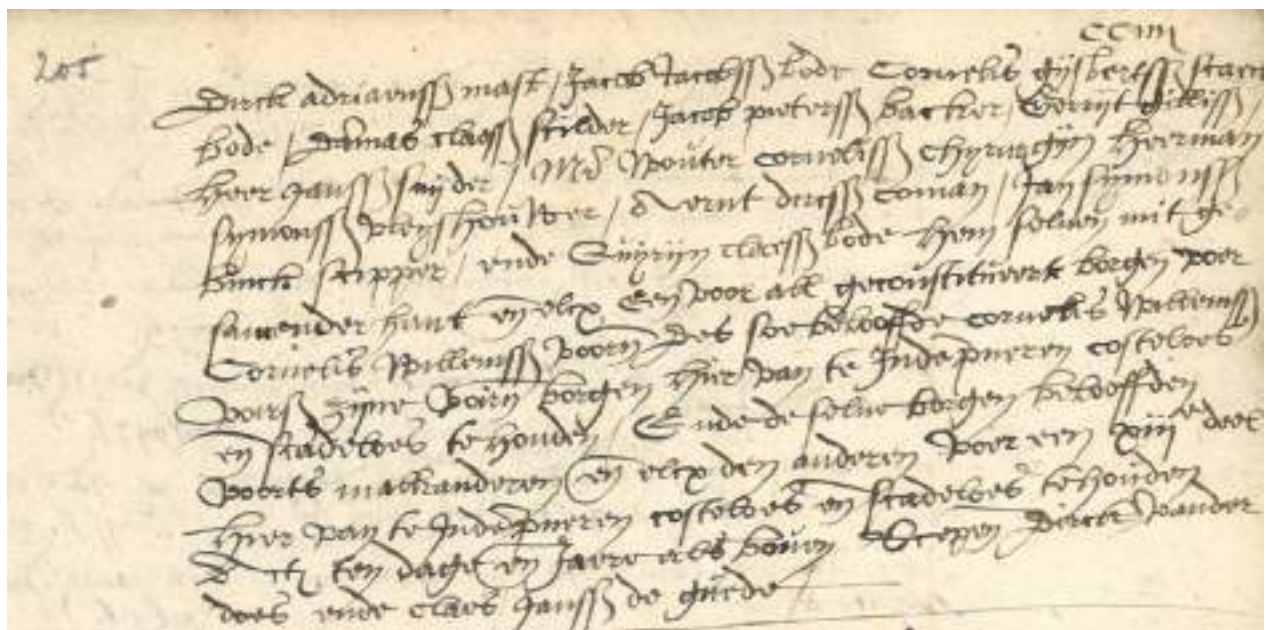 205
CCIIII
Dirck adriaenss mast / Jacob Jacobss bode Cornelis gijsbertss
bode / Damas claess scilder / Jacob pieterss backer / Gerijt gillis /
heer Janss snijder / Mr Wouter corneliss chyrurgijn heerman
symonss vleyshouwer / Aernt dircss coman / Jan symonss
buuck scipper / ende Quyryn claess bode hem seluen mit ge
samender hant en elcx Een voor all geconstitueert borgen voer
Cornelis Willemss voorn Des soe beloeffde cornelis Willemss
voirs zijne voirn borgen hier van te Indempneren costeloes
en scadeloes te houden / Ende de selue borgen beloeffden
voorts malkanderen en elcx den anderen voer een xiiije deel
hier van te Indempneren costeloes en scadeloes te houden
Actum ten dage en Jaere als boven Scepen Pieter vander
does ende claes Janss de guede